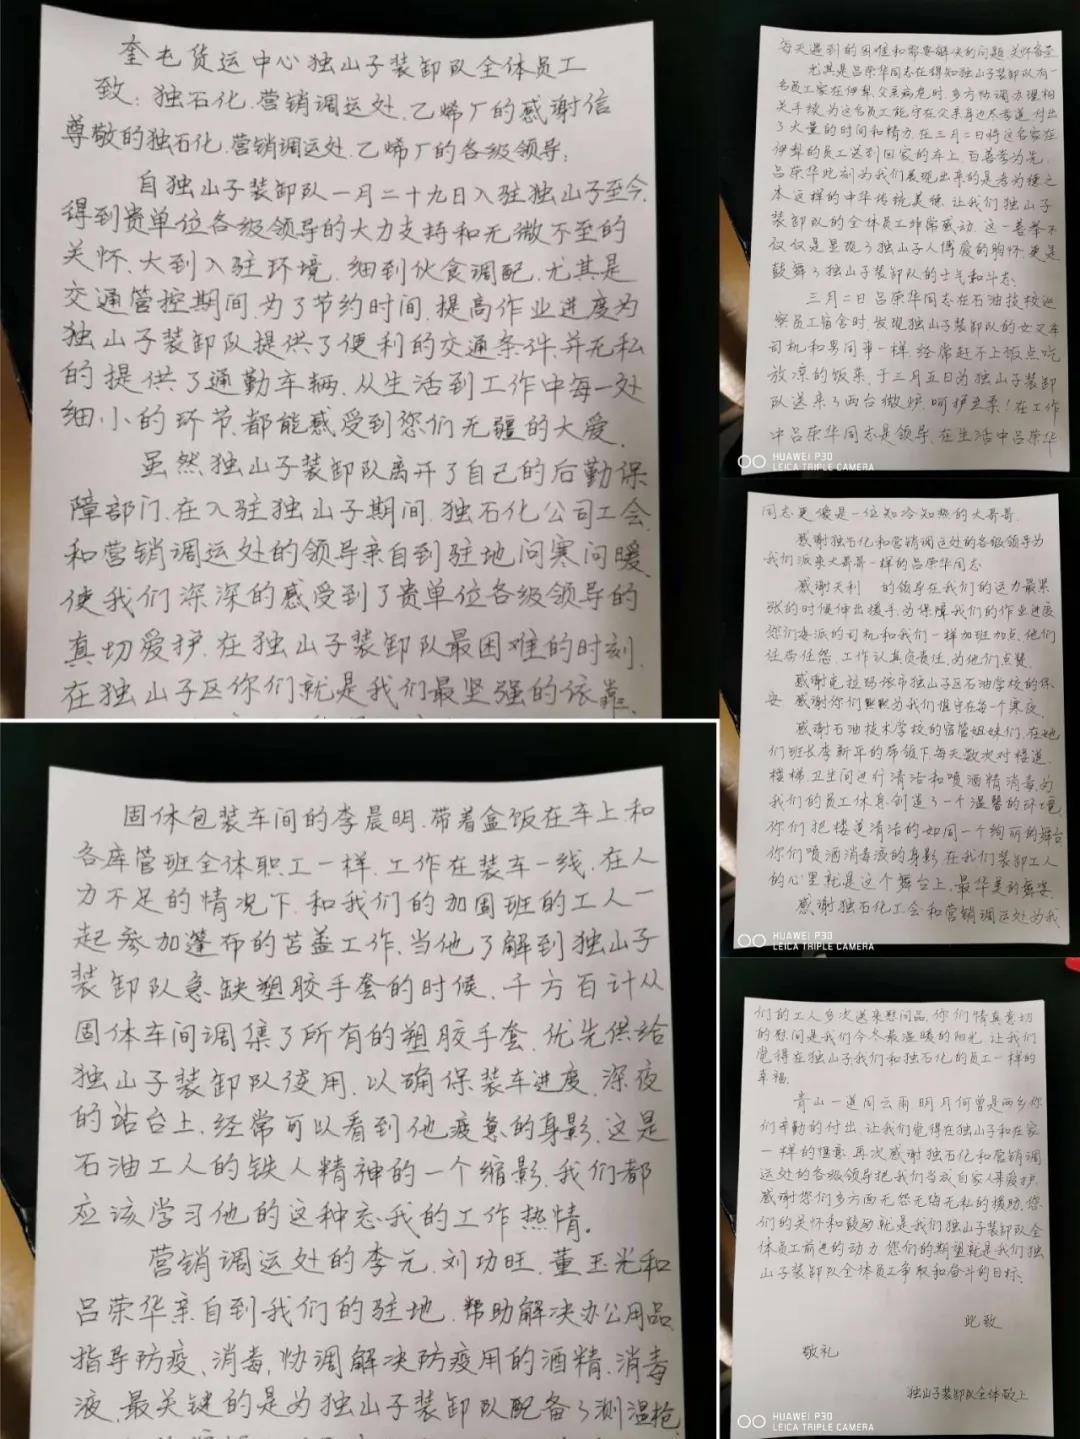 奎屯货运中心独山子装卸队全体员工
致:独石化.营销调运处.乙烯厂的感谢信
尊敬的独石化.营销调运处.乙烯厂的各级领导:
自独山子装卸队一月二十九日入驻独山子至今.
得到贵单位各级领导的大力支持和无微不至的
关怀.大到入驻环境.细到伙食调配.尤其是
交通管控期间.为了节约时间.提高作业进度为
独山子装卸队提供了便利的交通条件.并无私
的提供了通勤车辆.从生活到工作中每一处
细小的环节.都能感受到您们无疆的大爱.
虽然.独山子装卸队离开了自己的后勤保
障部门.在入驻独山子期间.独石化公司工会.
和营销调运处的领导亲自到驻地问寒问暖
使我们深深的感受到了贵单位各级领导的
真切爱护.在独山子装卸队最困难的时刻.
在独山子区你们就是我们最坚强的依靠.
固体包装车间的李晨明.带着盒饭在车上和
各库管班全体职工一样.工作在装车一线.在人
力不足的情况下.和我们的加固班的工人一
起参加篷布的苫盖工作.当他了解到独山子
装卸队急缺塑胶手套的时候.千方百计从
固体车间调集了所有的塑胶手套.优先供给
独山子装卸队使用.以确保装车进度.深夜
的站台上.经常可以看到他疲惫的身影.这是
石油工人的铁人精神的一个缩影.我们都
应该学习他的这种忘我的工作热情。
营销调运处的李元.刘功旺.董玉光和
吕荣华亲自到我们的驻地.帮助解决办公用品
指导防疫、消毒,协调解决防疫用的酒精.消毒
液.最关键的是为独山子装卸队配备了测温枪.
每天遇到的困难和需要解决的问题.关怀备至
尤其是吕荣华同志在得知独山子装卸队有一
名员工家在伊犁.父亲病危时.多方协调办理相
关手续.为这名员工能守在父亲身边尽孝道.付出
了大量的时间和精力.在三月二日将这名家在
伊犁的员工送到回家的车上.百善孝为先.
吕荣华此刻为我们展现出来的是孝为德之
本这样的中华传统美德.让我们独山子
装卸队的全体员工非常感动.这一善举不
仅仅是呈现了独山子人博爱的胸怀.更是
鼓舞了独山子装卸队的士气和斗志.
三月二日吕荣华同志在石油技校巡
察员工宿舍时.发现独山子装卸队的女叉车
司机和男同事一样.经常赶不上饭点吃
放凉的饭菜.于三月五日为独山子装卸
队送来了两台微炉.呵护至柔!在工作
中吕荣华同志是领导.在生活中吕荣华
HUAWEI P30
LEICA TRIPLE CAMERA
同志更像是一位知冷知热的大哥哥.
感谢独石化和营销调运处的各级领导为
我们派来大哥哥一样的吕荣华同志
感谢天利 的领导在我们的运力最紧
张的时候伸出援手.为保障我们的作业进度
您们委派的司机和我们一样加班加点.他们
任劳任怨.工作认真负责任.为他们点赞.
感谢克拉玛依市独山子区石油学校的保
安.感谢你们默默为我们坚守在每一个寒夜.
感谢石油技术学校的宿管姐妹们.在她
们班长李新年的带领下.每天数次对楼道.
楼梯.卫生间进行清洁和喷酒精消毒.为
我们的员工休息创造了一个温馨的环境.
你们把楼道清洁的如同一个绚丽的舞台
你们喷洒消毒液的身影.在我们装卸工人
的心里就是这个舞台上.最华美的舞姿.
感谢独石化工会和营销调运处为我
HUAWEI P30
LEICA TRIPLE CAMERA
们的工人多次送来慰问品.你们情真意切
的慰问是我们今冬最温暖的阳光.让我们
觉得在独山子我们和独石化的员工一样的
幸福.
青山一道同云雨.明月何曾是两乡.你
们辛勤的付出.让我们觉得在独山子和在家
一样的惬意.再次感谢独石化和营销调
运处的各级领导把我们当成自家人来爱护.
感谢您们多方面无怨无悔无私的援助.您
们的关怀和鼓励就是我们独山子装卸队全
体员工前进的动力.您们的期望就是我们独
山子装卸队全体员工争取和奋斗的目标.
此致
敬礼
独山子装卸队全体敬上
HUAWEI P30
LEICA TRIPLE CAMERA